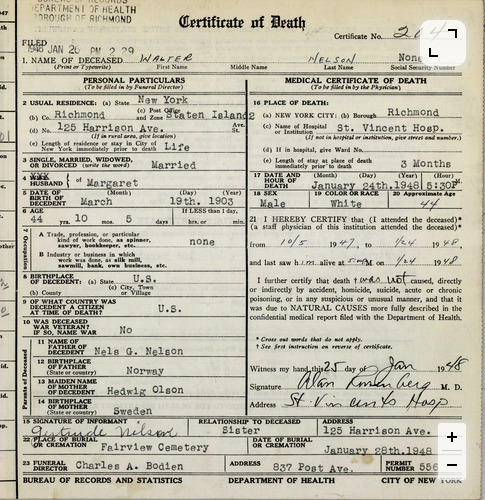 DEPARTMENT OF HEALTH
BOROUGH OF RICHMOND
Certificate of Death
FILED
1948 JAN 26 PM 2 29
Certificate No.
1. NAME OF DECEASED WALTER NELSON None
(Print or Typewrite) First Name Middle Name Last Name Social Security Number
PERSONAL PARTICULARS
(To be filled in by Funeral Director)
2 USUAL RESIDENCE: (a) State New York
(b) Co. Richmond (c) Post Office and Zone Staten Island 2
(d) No. 125 Harrison Ave.
(If in rural area, give location)
(e) Length of residence or stay in City of New York immediately prior to death Life
3 SINGLE, MARRIED, WIDOWED, OR DIVORCED (write the word) Married
4 HUSBAND of Margaret
5 DATE OF BIRTH OF DECEDENT (Month) (Day) (Year)
March 19th. 1903
6 AGE If LESS than 1 day,
44 yrs. 10 mos. 5 days hrs. or min.
7 Occupation
A Trade, profession, or particular kind of work done, as spinner, sawyer, bookkeeper, etc. none
B Industry or business in which work was done, as silk mill, sawmill, bank, own business, etc.
8 BIRTHPLACE OF DECEDENT: (a) State U.S.
(b) County (c) City, Town or Village
9 OF WHAT COUNTRY WAS DECEDENT A CITIZEN AT TIME OF DEATH? U.S.
10 WAS DECEASED WAR VETERAN? IF SO, NAME WAR No
Parents of Deceased
11 NAME OF FATHER OF DECEDENT Nels G. Nelson
12 BIRTHPLACE OF FATHER (State or country) Norway
13 MAIDEN NAME OF MOTHER OF DECEDENT Hedwig Olson
14 BIRTHPLACE OF MOTHER (State or country) Sweden
MEDICAL CERTIFICATE OF DEATH
(To be filled in by the Physician)
16 PLACE OF DEATH:
(a) NEW YORK CITY: (b) Borough Richmond
(c) Name of Hospital or Institution St. Vincent Hosp.
(If not in hospital or institution, give street and number.)
(d) If in hospital, give Ward No.
(e) Length of stay at place of death immediately prior to death 3 Months
17 DATE AND HOUR OF DEATH (Month) (Day) (Year) (Hour)
January 24th.1948 5:30P M
18 SEX 19 COLOR OR RACE 20 Approximate Age
Male White 44
21 I HEREBY CERTIFY that (I attended the deceased)*
(a staff physician of this institution attended the deceased)*
from 10/5 1947, to 1/24 1948
and last saw him alive at M on 1/24 1948
I further certify that death was not caused, directly
or indirectly by accident, homicide, suicide, acute or chronic
poisoning, or in any suspicious or unusual manner, and that it
was due to NATURAL CAUSES more fully described in the
confidential medical report filed with the Department of Health.
* Cross out words that do not apply.
* See first instruction on reverse of certificate.
Witness my hand this 25 day of Jan 1948
Signature M. D.
Address St. Vincents Hosp
15 SIGNATURE OF INFORMANT RELATIONSHIP TO DECEASED ADDRESS
Gertrude Nilson Sister 125 Harrison Ave.
22 PLACE OF BURIAL OR CREMATION Fairview Cemetery DATE OF BURIAL OR CREMATION January 28th.1948
23 FUNERAL DIRECTOR Charles A. Bodien ADDRESS 837 Post Ave. PERMIT NUMBER 556
BUREAU OF RECORDS AND STATISTICS DEPARTMENT OF HEALTH CITY OF NEW YORK